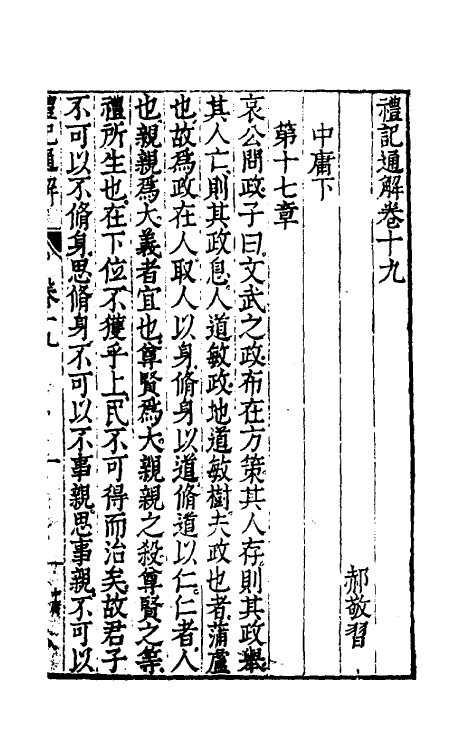 禮記通解卷十九
郝敬習
中庸下
第十七章
哀公問政子曰文武之政布在方策其人存則其政舉
其人亡則其政息人道敏政地道敏樹夫政也者蒲盧
也故爲政在人取人以身脩身以道脩道以仁仁者人
也親親爲大義者宜也尊賢爲大親親之殺尊賢之等
禮所生也在下位不獲乎上民不可得而治矣故君子
不可以不脩身思脩身不可以不事親思事親不可以
禮記通解 卷十九